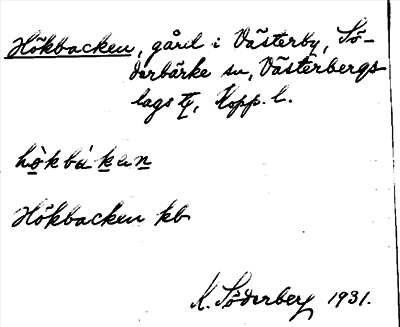 Hökbacken, gård i Västerby, Sö-
derbärke sn, Västerbergs
lags tg, Kopp. l.
hökbákan
Hökbacken kb
K. Söderberg 1931.